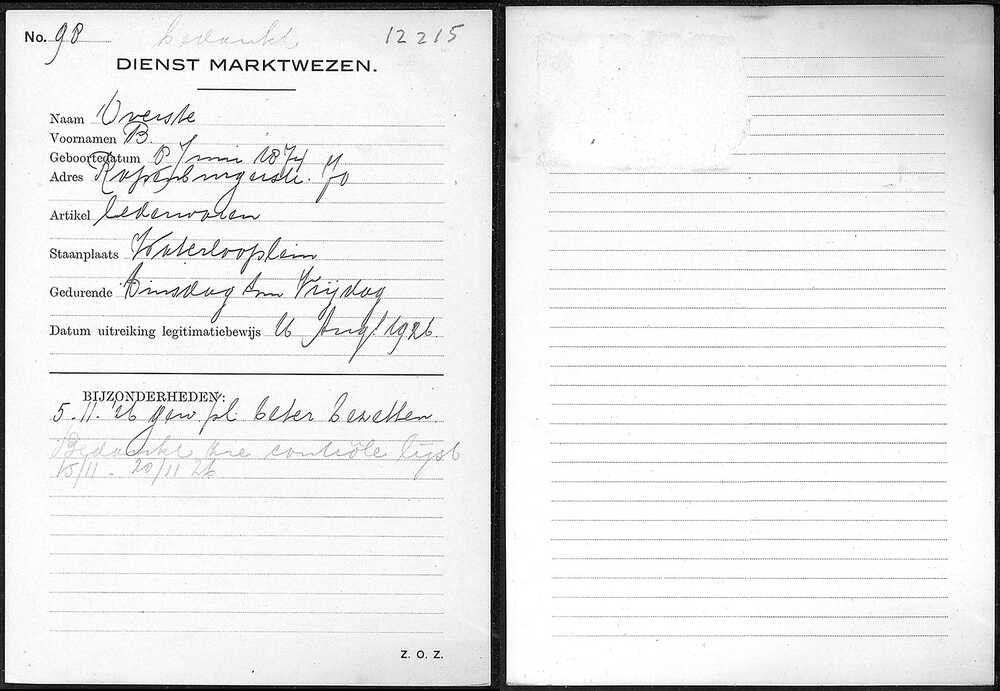 No. 98 bedankt 12215
DIENST MARKTWEZEN.
Naam Overste
Voornamen B.
Geboortedatum 8 Juni 1874
Adres Rapenburgerstr. 70
Artikel lederwaren
Staanplaats Waterlooplein
Gedurende Dinsdag t/m Vrijdag
Datum uitreiking legitimatiebewijs 26 Aug. 1926.
BIJZONDERHEDEN:
5-11-'26 gew. pl. beter bezetten.
Bedankt zie contrôle lijst
15/11 - 20/11 26
Z. O. Z.